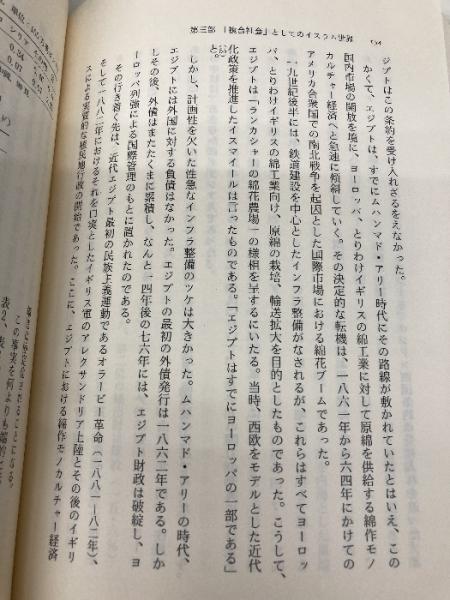 第三部 「複合社会」としてのイスラム世界
ジプトはこの条約を受け入れざるをえなかった。
かくて、エジプトは、すでにムハンマド・アリー時代にその路線が敷かれていたとはいえ、この
国内市場の開放を境に、ヨーロッパ、とりわけイギリスの綿工業に対して原綿を供給する綿作モノ
カルチャー経済へと急速に傾斜していく。その決定的な転機は、一八六一年から六四年にかけての
アメリカ合衆国での南北戦争を起因とした国際市場における綿花ブームであった。
一九世紀後半には、鉄道建設を中心としたインフラ整備がなされるが、これらはすべてヨーロッ
パ、とりわけイギリスの綿工業向け、原綿の栽培、輸送拡大を目的としたものであった。こうして、
エジプトは「ランカシャーの綿花農場」の様相を呈するにいたる。当時、西欧をモデルとした近代
化政策を推進したイスマイールは言ったものである。「エジプトはすでにヨーロッパの一部である」
と。
しかし、計画性を欠いた性急なインフラ整備のツケは大きかった。ムハンマド・アリーの時代、
エジプトには外国に対する負債はなかった。エジプトの最初の外債発行は一八六二年である。しか
しその後、外債はまたたくまに累積し、なんと一四年後の七六年には、エジプト財政は破綻し、ヨ
ーロッパ列強による国際管理のもとに置かれたのである。
その行き着く先は、近代エジプト最初の民族主義運動であるオラービー革命(一八八一-八二年)、
そして一八八二年におけるそれを口実としたイギリス軍のアレクサンドリア上陸とその後のイギリ
スによる実質的な植民地行政の開始であった。ここに、エジプトにおける綿作モノカルチャー経済
この事実を何よりも端的に
表2、表